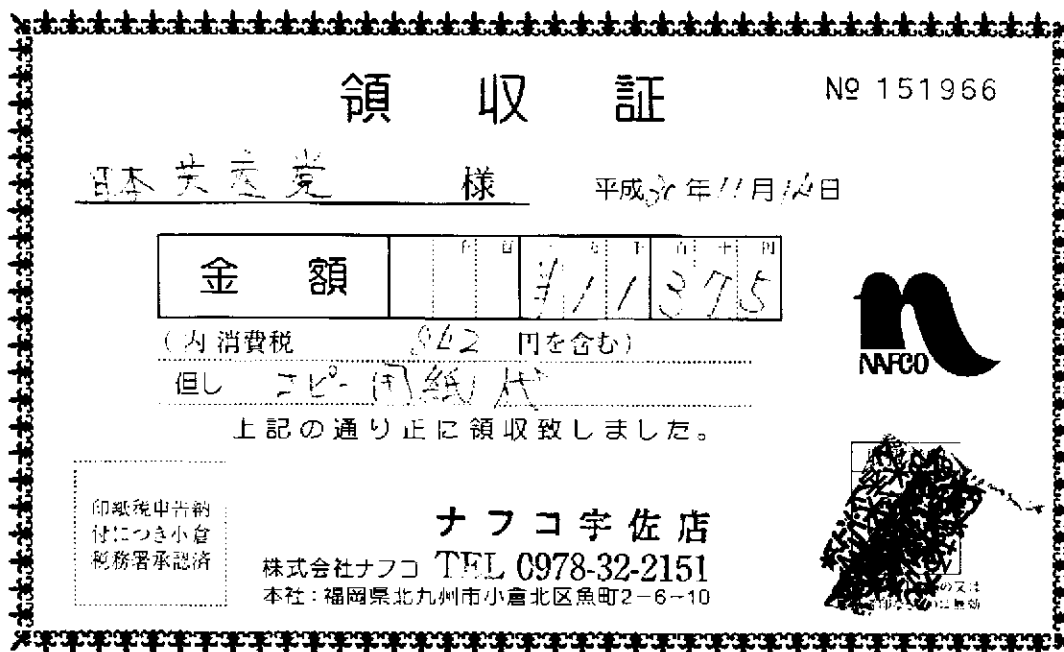 領収証
№ 151966
日本共産党 様
平成30年11月14日
金額
千 百 十 万 千 百 十 円
¥11375
(内消費税 842 円を含む)
但し コピー用紙代
上記の通り正に領収致しました。
NAFCO
印紙税申告納
付につき小倉
税務署承認済
ナフコ宇佐店
株式会社ナフコ TEL 0978-32-2151
本社:福岡県北九州市小倉北区魚町2-6-10
の又は
は無効